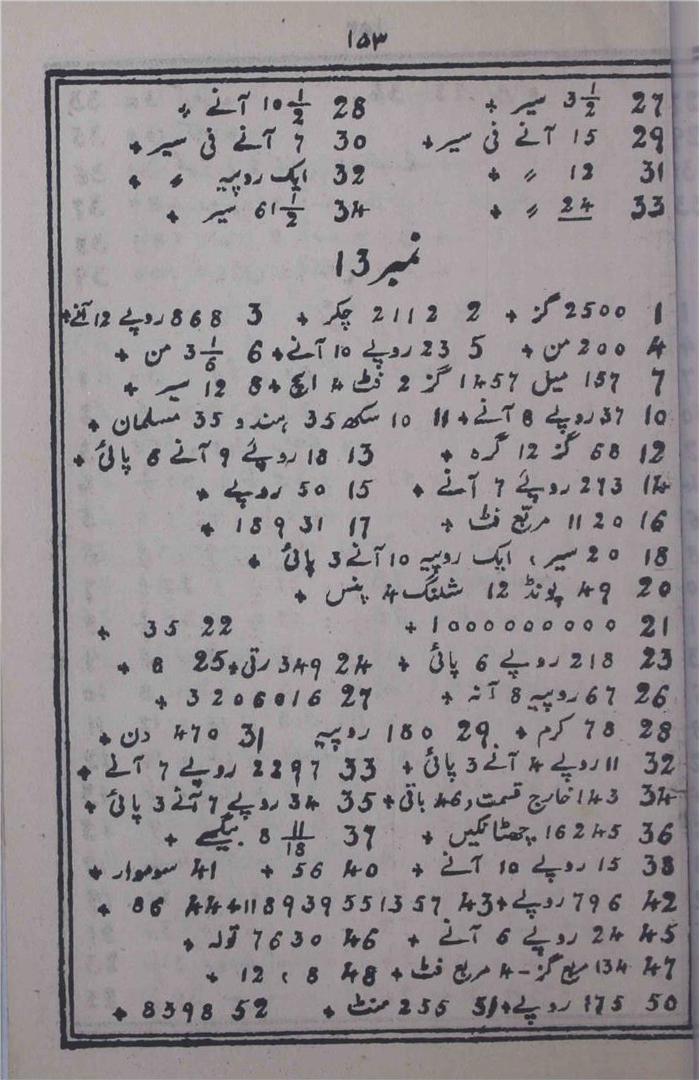 ۱۵۳
27 3 1/2 سیر + 28 10 1/2 آنے 〃
29 15 آنے فی سیر + 30 7 آنے فی سیر +
31 12 〃 + 32 ایک روپیہ 〃 +
33 24 〃 + 34 61 1/2 سیر +
نمبر 13
1 2500 گز + 2 2112 چکر + 3 868 روپے 12 آنے +
4 200 من + 5 23 روپے 10 آنے + 6 3 1/6 من +
7 157 میل 1457 گز 2 فٹ 4 انچ + 8 12 سیر +
10 37 روپے 8 آنے + 11 10 سکھ 35 ہندو 35 مسلمان +
12 68 گز 12 گرہ + 13 18 روپے 9 آنے 6 پائی +
14 273 روپے 7 آنے + 15 50 روپے +
16 1120 مربع فٹ + 17 1893 1 +
18 20 سیر، ایک روپیہ 10 آنے 3 پائی +
20 49 پونڈ 12 شلنگ 4 پنس +
21 10000000000 + 22 35 +
23 218 روپے 6 پائی + 24 349 رتی + 25 8 +
26 67 روپیہ 8 آنہ + 27 3206016 +
28 78 کرم + 29 180 روپیہ 31 470 دن +
32 11 روپے 4 آنے 3 پائی + 33 2297 روپے 7 آنے +
34 143 خارج قسمت و 46 باقی + 35 34 روپے 7 آنے 3 پائی +
36 16245 چھٹانکیں + 37 8 11/18 بیگھے +
38 15 روپے 10 آنے + 40 56 + 41 سوموار +
42 796 روپے + 43 118939551357 + 44 86 +
45 24 روپے 6 آنے + 46 7630 تولہ +
47 134 مربع گز - 4 مربع فٹ + 48 8، 12 +
50 175 روپے + 51 255 منٹ + 52 8398 +